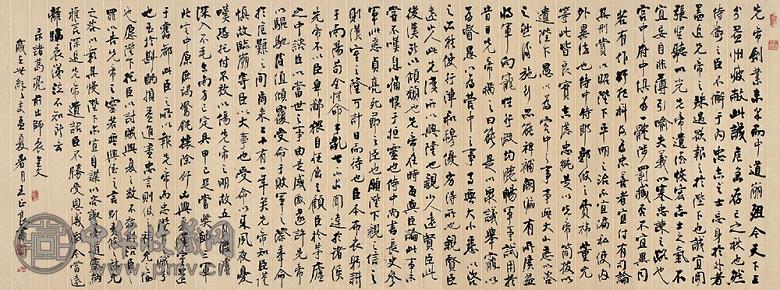 先帝創業未半而中道崩殂今天下三
分益州疲敝此誠危急存亡之秋也然
侍衛之臣不懈于內忠志之士忘身於外者
蓋追先帝之殊遇欲報之於陛下也誠宜開
張聖聽以光先帝遺德恢宏志士之氣不
宜妄自菲薄引喻失義以塞忠諫之路也
宮中府中俱為一體陟罰臧否不宜異同
若有作奸犯科及為忠善者宜付有司論
其刑賞以昭陛下平明之治不宜偏私使內
外異法也侍中侍郎郭攸之費禕董允
等此皆良實志慮忠純是以先帝簡拔以
遺陛下愚以為宮中之事事無大小悉以咨
之然後施行必能裨補闕漏有所廣益
將軍向寵性行淑均曉暢軍事試用於
昔日先帝稱之曰能是以眾議舉寵以
為督愚以為營中之事事無大小悉以咨
之必能使行陣和穆優劣得所也親賢臣
遠小人此先漢所以興隆也親小人遠賢臣此
後漢所以傾頹也先帝在時每與臣論此事未
嘗不嘆息痛恨于桓靈也侍中尚書長史參
軍此悉貞亮死節之臣也願陛下親之信之
則漢室之隆可計日而待也臣本布衣躬耕
于南陽苟全性命於亂世不求聞達於諸侯
先帝不以臣卑鄙猥自枉屈三顧臣於草廬
之中諮臣以當世之事由是感激遂許先帝
以驅馳後值傾覆受任于敗軍之際奉命
於危難之間爾來二十有一年矣先帝知臣謹
慎故臨崩寄臣以大事也受命以來夙夜憂
嘆恐托付不效以傷先帝之明故五月渡瀘
深入不毛今南方已定兵甲已足當獎帥三軍
北定中原庶竭駑鈍攘除奸凶興復漢室還
于舊都此臣之所以報先帝而忠陛下之職分
也至於斟酌損益進盡忠言則攸之禕允之任
也願陛下托臣以討賊興復之效不效則治臣之
罪以告先帝之靈若無興德之言則責攸之禕允
之慢以彰其咎陛下亦宜自謀以咨諏善道察納
雅言深追先帝遺詔臣不勝受恩感激今當遠
離臨表涕泣不知所云
右諸葛亮前出師表
中華收藏網
www.pmcv.cn